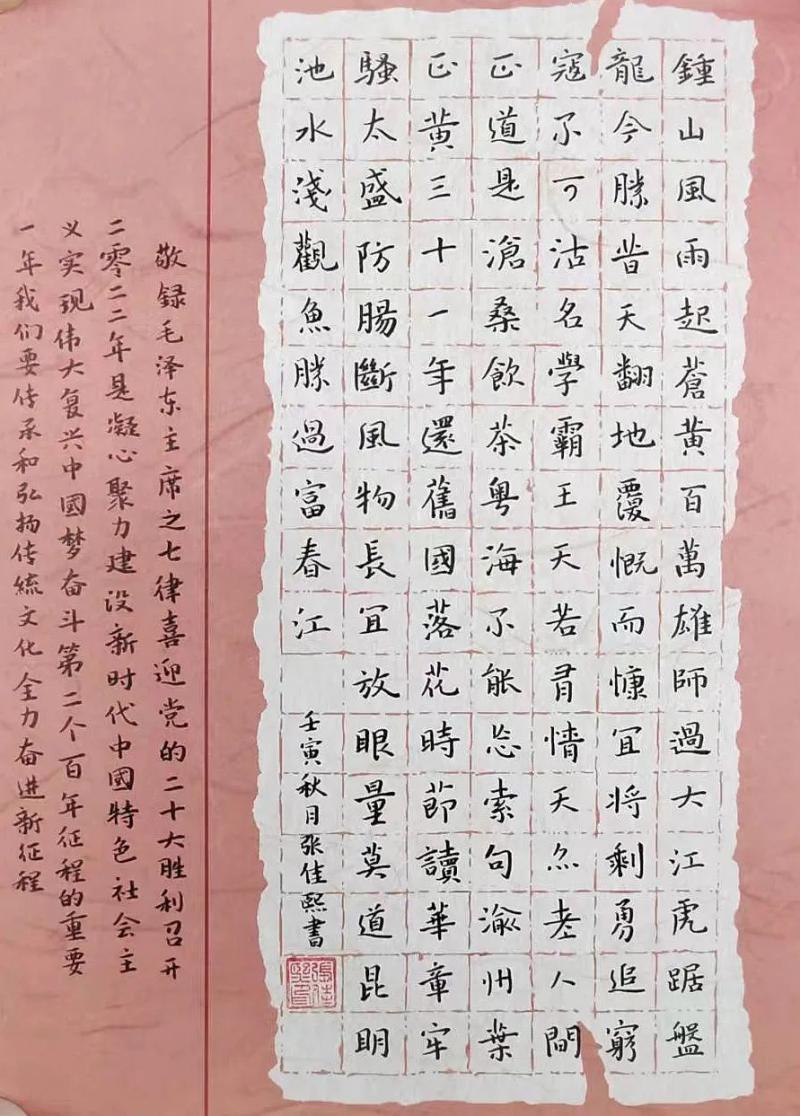 鍾山風雨起蒼黃百萬雄師過大江虎踞盤
龍今勝昔天翻地覆慨而慷宜將剩勇追窮
寇不可沽名學霸王天若有情天亦老人間
正道是滄桑飲茶粵海不能忘索句渝州葉
正黃三十一年還舊國落花時節讀華章牢
騷太盛防腸斷風物長宜放眼量莫道昆明
池水淺觀魚勝過富春江
壬寅秋月张佳熙書
敬録毛泽东主席之七律喜迎党的二十大胜利召开
二零二二年是凝心聚力建设新时代中國特色社会主
义实现伟大复兴中國梦奋斗第二个百年征程的重要
一年我们要传承和弘扬传统文化全力奋进新征程